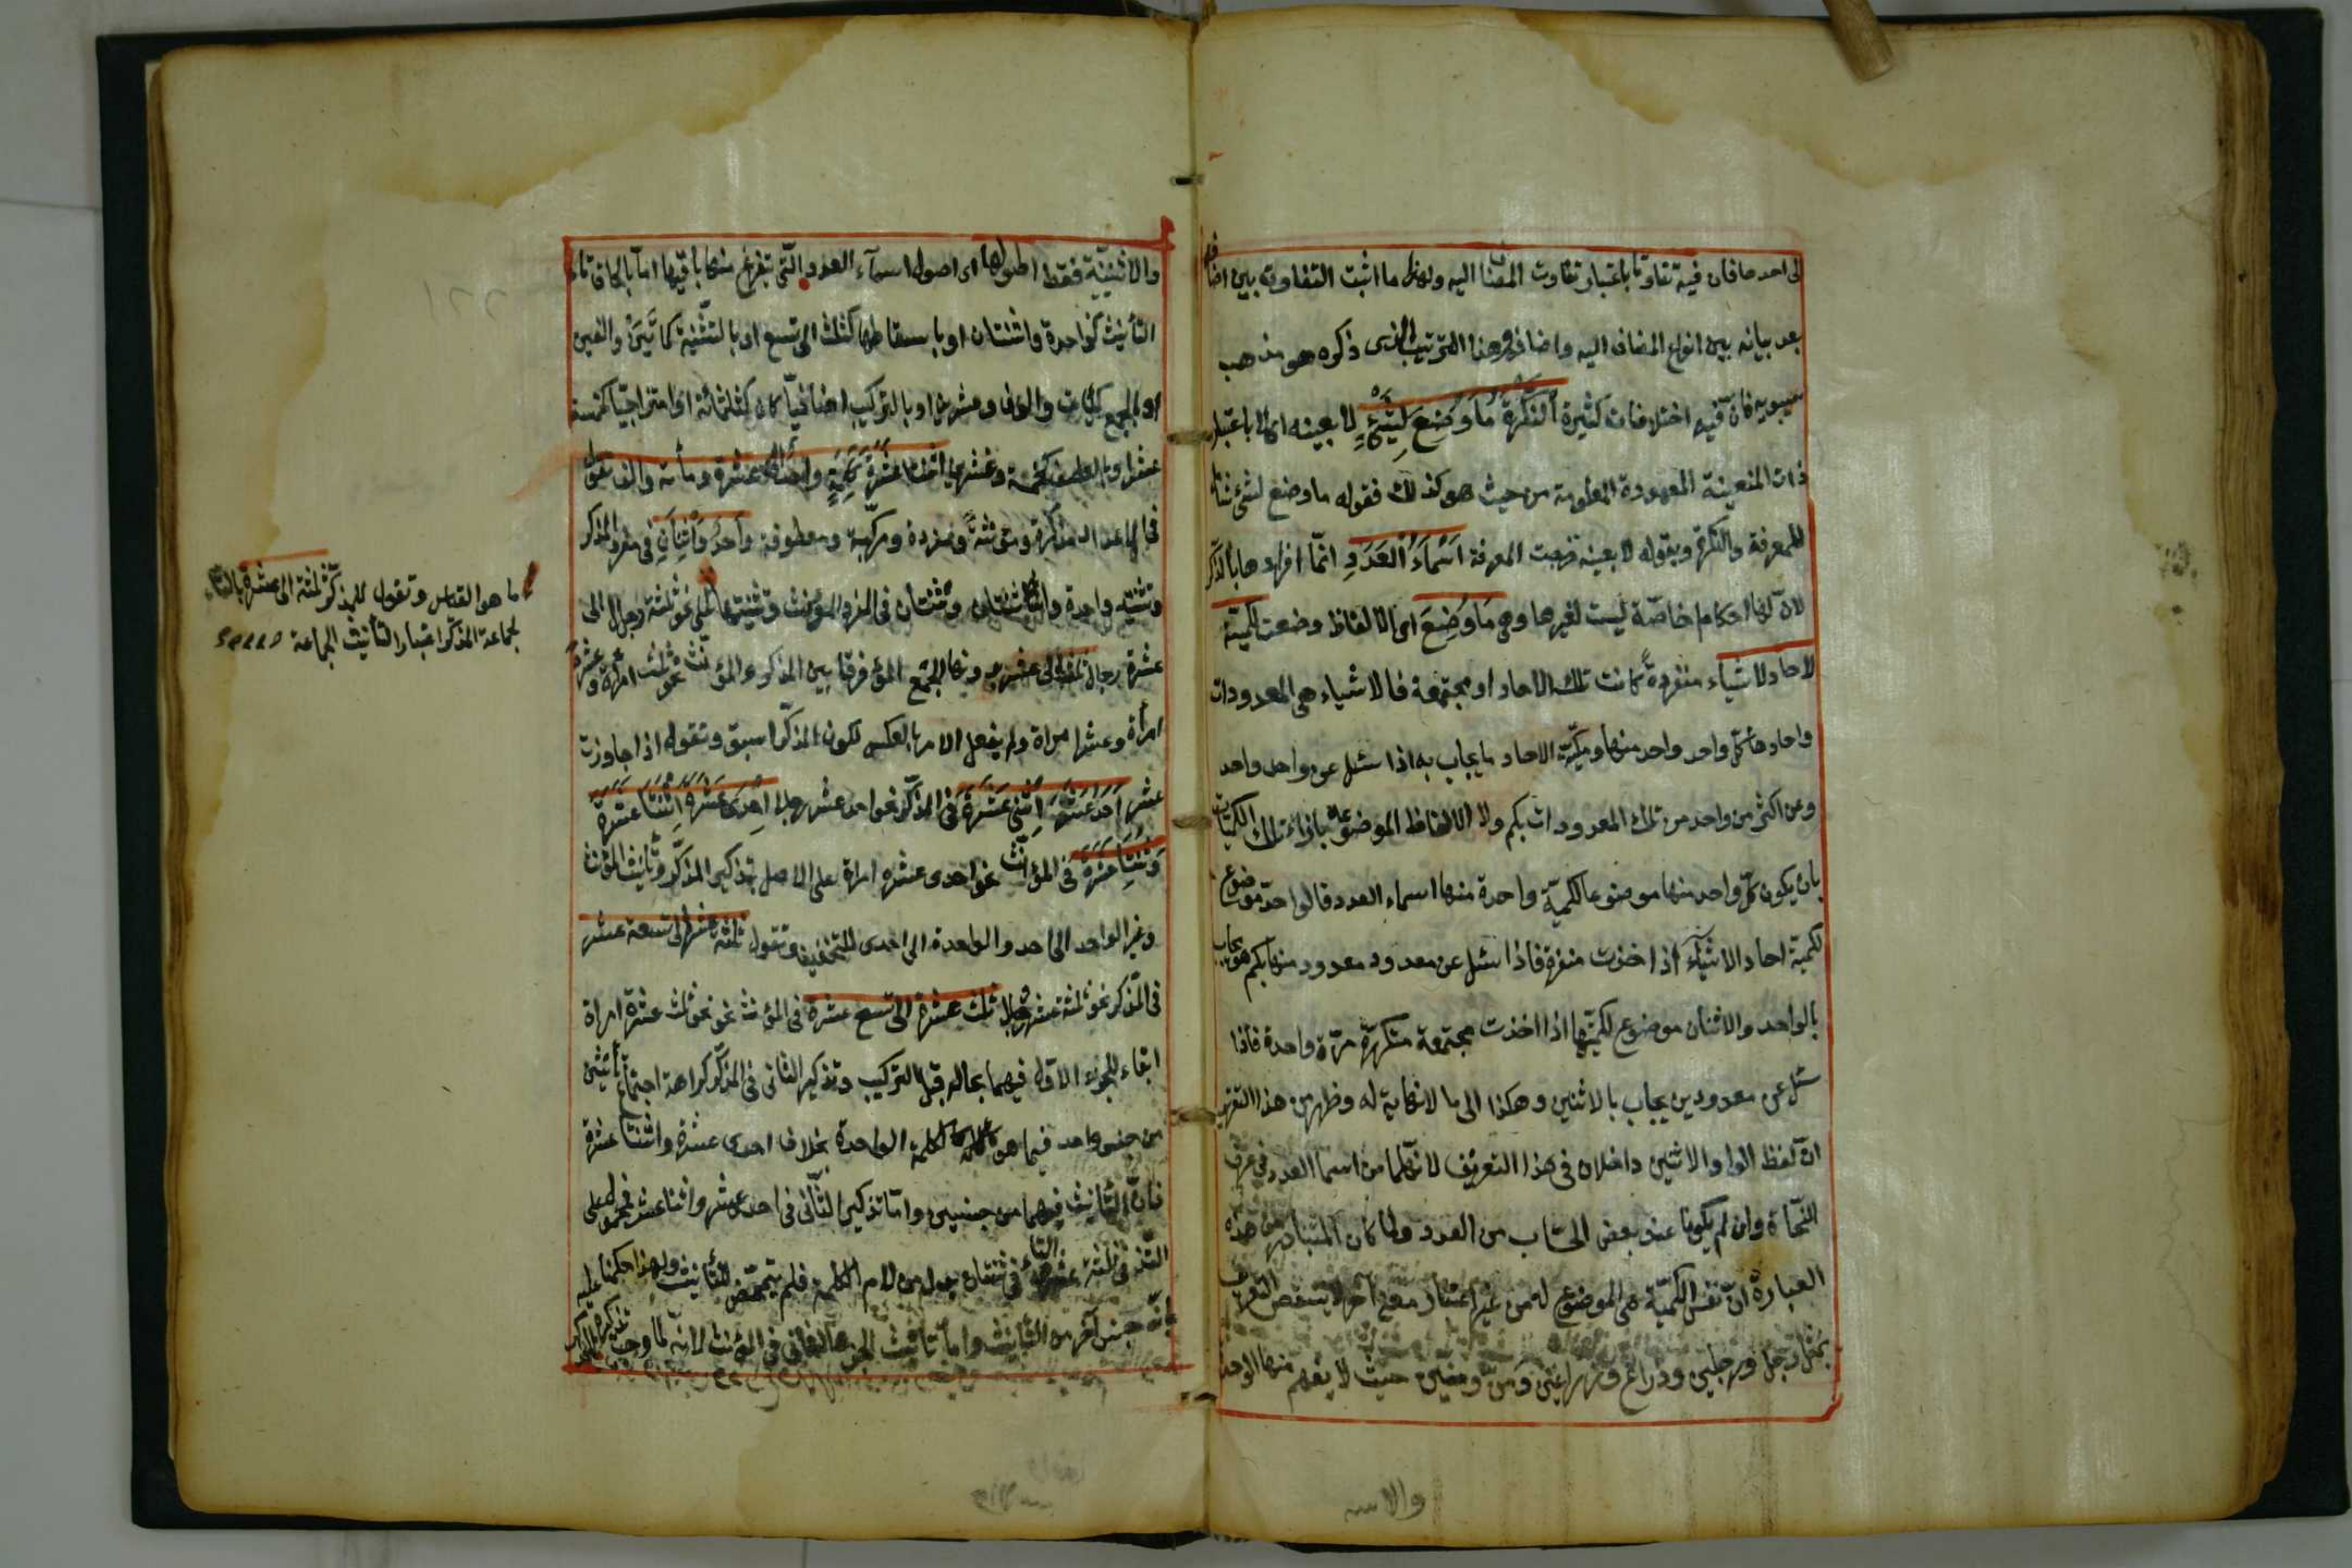 الى احدها فان فيه تفاوتا باعتبار تفاوت المضاف اليه ولهذا ما اثبت التفاوت بين اضافة
بعد بيانه بين انواع المضاف اليه واضافة وهذا الترتيب الذى ذكره هو مذهب
سيبويه فان فيه اختلافات كثيرة اَلنَّكِرَةُ مَا وُضِعَ لِشَيْءٍ لا بعينه اى لا باعتبار
ذات المتعينة المعهودة المعلومة من حيث هو كذلك فقوله ما وضع لشئ شامل
للمعرفة والنكرة وبقوله لا بعينه خرجت المعرفة اَسْمَاءُ الْعَدَدِ انّما افردها بالذكر
لانّ لها احكام خاصّة ليست لغيرها وهى مَا وُضِعَ اى الالفاظ وضعت لكمية
لاحاد الاشياء منفردةً كانت تلك الاحاد او مجتمعة فالاشياء هى المعدودات
واحادها كلّ واحد واحد منها وكميّة الاحاد ما يجاب به اذا سئل عن واحد واحد
وعن اكثر من واحد من تلك المعدودات بكم ولا الالفاظ الموضوعة بازاء تلك الكميات
بان يكون كلّ واحد منها موضوعا لكميّة واحدة منها اسماء العدد فالواحد موضوع
لكمية احاد الاشياء اذا اخذت منفردة فاذا سئل عن معدود معدود منها بكم هو يجاب
بالواحد والاثنان موضوع لكميتها اذا اخذت مجتمعة متكررة مرّة واحدة فاذا
سئل عن معدودين يجاب بالاثنين وهكذا الى ما لا نهاية له وظهر من هذا التقرير
انّ لفظ الواحد والاثنين داخلان فى هذا التعريف لانهما من اسماء العدد فى عرف
النحاة وان لم يكونا عند بعض الحساب من العدد ولما كان المتبادر من هذه
العبارة انّ نفس الكميّة هى الموضوع له من غير اعتبار معنى آخر لا ينتقض التعريف
بمثل رجل ورجلين وذراع وذراعين ومن ومنين حيث لا يفهم منها الواحد
والاثـ
والاثنينيّة فقط اصولها اى اصول اسماء العدد التّى يتفرع منها باقيها امّا بالحاق تاء
التأنيث كواحدة واثنتان او باسقاطها كثلث الى تسع او بالتثنية كمأتين والفين
او بالجمع كمئات والوف وعشرين او بالتركيب اضافيّا كان كثلثمائة او امتزاجيّا كخمسة
عشر او بالعطف كخمسة وعشرين اثنتا عَشْرَةَ كَلِمَةً واحد الى عشرة ومائة والف تقول
فى الاعداد مذكرة ومؤنثة ومفردة ومركّبة ومعطوفة وَاحِدٌ وَاثْنَانِ فى مفرد المذكر
وتثنيته واحدة واثنتان وثنتان فى المفرد المؤنث وتثنيتها نحو ثلثة رجال الى
عشرة رجال ثلث الى عشر دونها لجمع المؤنث فرقا بين المذكر والمؤنث نحو ثلث امراة وعشر
امرأة وعشر امراة ولم يفعل الامر بالعكس لكون المذكّر اسبق وتقول اذا جاوزت
عشر اَحَدَ عَشَرَ اِثْنَى عَشَرَ فى المذكّر نحو احد عشر رجلا اِحْدَى عَشْرَةَ اِثْنَتَا عَشْرَةَ
وَثِنْتَا عَشْرَةَ فى المؤنّث نحو احدى عشرة امراة على الاصل بتذكير المذكّر وتأنيث المؤنث
وغير الواحد الى احد والواحدة الى احدى للتخفيف وتقول ثلثة عشر الى تسعة عشر
فى المذكر نحو ثلثة عشر رجلا ثلث عشرة الى تسع عشرة فى المؤنث نحو ثلث عشرة امراة
ابقاء للجزء الاول فيهما بحاله قبل التركيب وتذكير الثانى فى المذكّر كراهة اجتماع تأنيثين
من جنس واحد فيما هو كالكلمة الواحدة بخلاف احدى عشرة واثنتا عشرة
فانّ التأنيث فيهما من جنسين وامّا تذكير الثّانى فى احد عشر واثنا عشر فمحمول على
التذكير فى ثلثة عشر والتاء فى ثنتان بدل من لام الكلمة فلم يتمحض للتأنيث ولهذا حكمنا عليه
بانّه جنس آخر من التأنيث وامّا تأنيث الجزء الثانى فى المؤنث لانّه لما وجب تذكيره فى المذكر
ما هو القياس وتقول للمذكّر ثلثة الى عشرة بالتاء
لجماعة المذكّر اعتبار التأنيث الجماعة